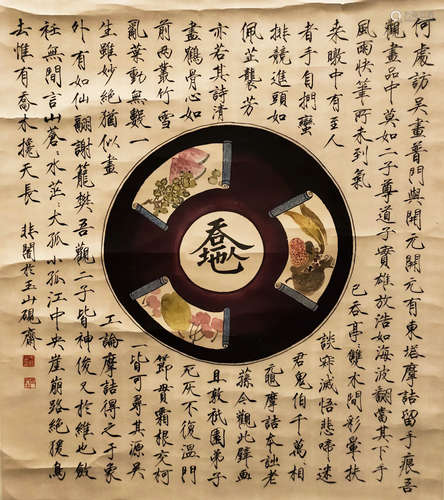 何處訪吳畫普門與開元開元有東塔摩詰留手痕吾
觀畫品中莫如二子尊道子實雄放浩如海波翻當其下手
風雨快筆所未到氣
已吞亭雙木間彩暈扶
來暾中有至人
談寂滅悟悲啼迷
者手自捫蠻
君鬼伯千萬相
排競進頭如
黿摩詰本詩老
佩芷襲芳
蓀今觀此壁畫
亦若其詩清
且敦祇園弟子
盡鶴骨心如
死灰不復溫門
前兩叢竹雪
節貫霜根交柯
亂葉動無數一
一皆可尋其源吳
生雖妙絕猶似畫
工論摩詰得之于象
外有如仙翮謝籠樊吾觀二子皆神俊又於維也斂
衽無間言山蒼水茫大孤小孤江中央崖崩路絕猿鳥
去惟有喬木攙天長
閣於玉山硯齋